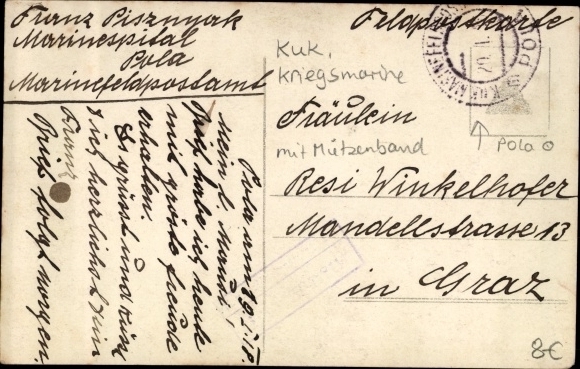 Franz Pisznyak
Marinespital
Pola
Marinefeldpostamt
Feldpostkarte
K.u.K. MARINEFELDPOSTAMT POLA
Kuk.
Kriegsmarine
mit Mützenband
Pola
Fräulein
Resi Winkelhofer
Mandellstrasse 13
in Graz
8€
Pola am 29.I.18.
Mein l. Mandi!
Brief habe ich heute
mit größte Freude
erhalten.
Es grüsst und küsst
Dich herzlichst Dein
Franz
Brief folgt morgen.